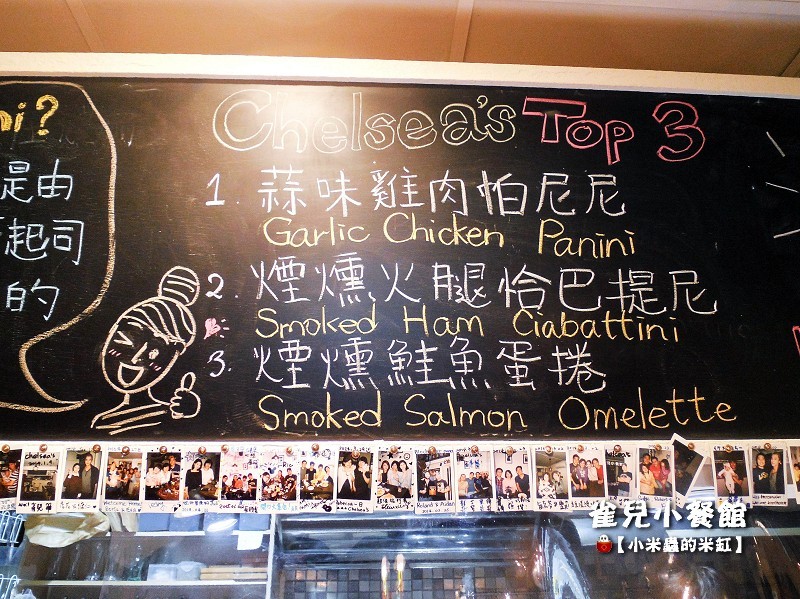 ni?
是由
起司
的
Chelsea's Top 3
1. 蒜味雞肉怕尼尼
Garlic Chicken Panini
2. 煙燻火腿恰巴提尼
Smoked Ham Ciabattini
3. 煙燻鮭魚蛋捲
Smoked Salmon Omelette
雀兒小餐館
【小米蟲的米缸】